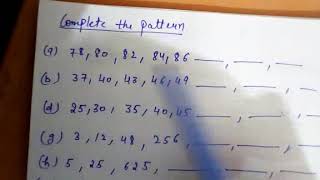 Complete the pattern
(a) 78, 80, 82, 84, 86 __, __, __
(b) 37, 40, 43, 46, 49 __, __, __
(d) 25, 30, 35, 40, 45 __, __, __
(g) 3, 12, 48, 256, __, __, __
(h) 5, 25, 625, __, __, __